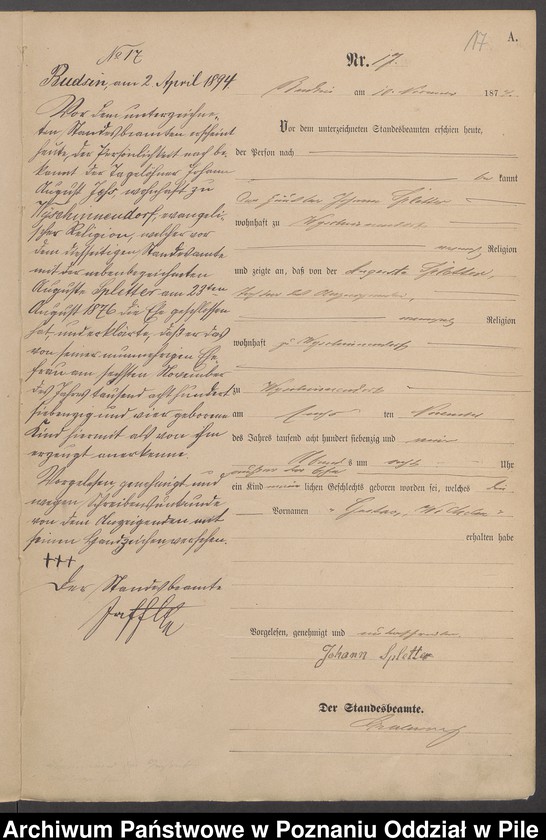 17
A.
No 17
Budsin, am 2 April 1894
Vor dem unterzeichne-
ten Standesbeamten erscheint
heute, der Persönlichkeit nach be-
kannt der Tagelöhner Johann
August Jahs wohnhaft zu
Wyschinnendorf, evangeli-
scher Religion, welcher vor
dem diesseitigen Standesamte
mit der nebenbezeichneten
Auguste Spletter am 29ten
August 1876 die Ehe geschlossen
hat, und erklärte, daß er das
von seiner nunmehrigen Ehe-
frau am sechsten November
des Jahres tausend acht hundert
siebenzig und vier geborene
Kind hiermit als von ihm
erzeugt anerkenne.
Vorgelesen, genehmigt und
wegen Schreibensunkunde
von dem Anzeigenden mit
seinem Handzeichen versehen.
+++
Der Standesbeamte
Nr. 17.
Budsin am 10. November 1874.
Vor dem unterzeichneten Standesbeamten erschien heute,
der Person nach
be kannt
der Johann Spletter
wohnhaft zu Wyschinnendorf
Religion
und zeigte an, daß von der Auguste Spletter,
Religion
wohnhaft zu Wyschinnendorf
zu Wyschinnendorf
am ten November
des Jahres tausend acht hundert siebenzig und vier
Abends um acht Uhr
ein Kind lichen Geschlechts geboren worden sei, welches
Vornamen Gustav
erhalten habe
Vorgelesen, genehmigt und unterschrieben
Johann Spletter
Der Standesbeamte.
Archiwum Państwowe w Poznaniu Oddział w Pile